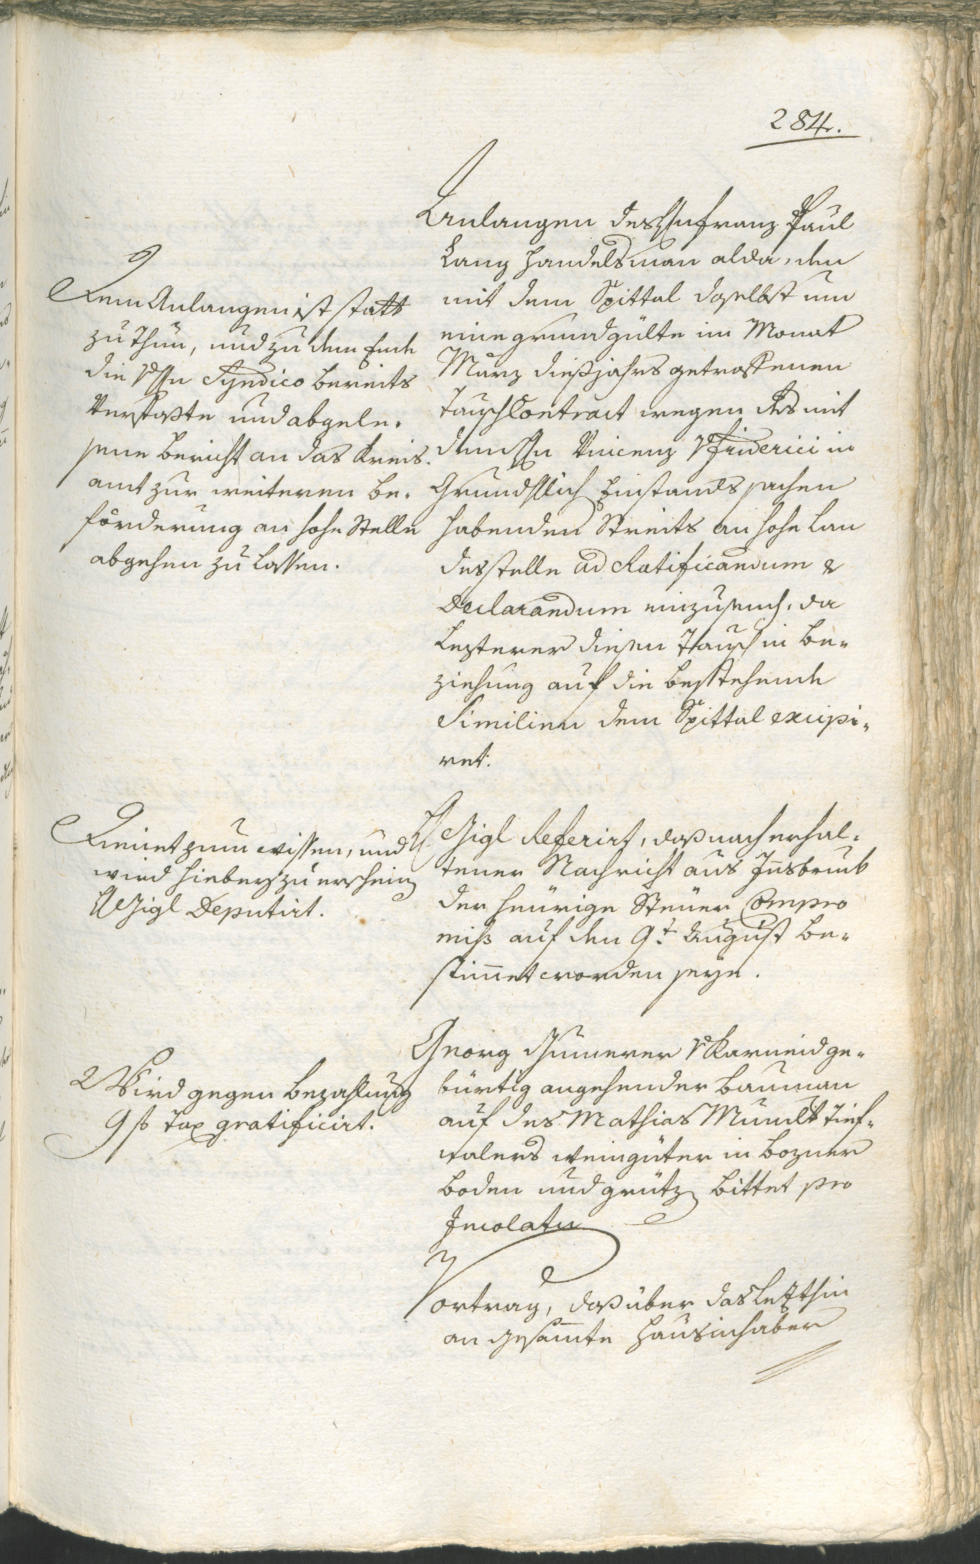 284.
Anlangen des Hn franz Paul
Lang Handelsman alda, den
mit dem Spittal daselbst um
eine grundgülte im Monat
Mürz dießjahrs getroffenen
Tausch Contract wegen des mit
dem Hn Vincenz v Friderici in
Grundstllich Einstands sachen
habenden Streits an hohe Lan
desstelle ad Ratificandum &
Declarandum einzusuch, da
Lezterer diesen Tausch in be-
ziehung auf die bestehende
Similien dem Spittal excipi-
ret.
Dem Anlangen ist statt
zu thun, und zu dem Ende
die v Hn Syndico bereits
verfaßte und abgele-
sene bericht an das Kreis-
amt zur weiteren be-
förderung an hohe Stelle
abgehen zu lassen.
H Gigl Referirt, daß nach erhal-
tener Nachricht aus Insbruck
der heürige Steüer Compro
miss auf den 9t August be-
stimmet worden seye.
Dienet zum wissen, und
wird hiebey zu erscheinen
H Gigl Deputirt.
Georg v Karneid ge-
bürtig angehender bauman
auf des Mathias Mumelt Tief-
talers weingüter in bozner
boden und grütz bittet pro
Incolatu
Wird gegen bezahlung
9 f Tax gratificirt.
Vortrag, daß über das letsthin
an gesamte Hausinhaber